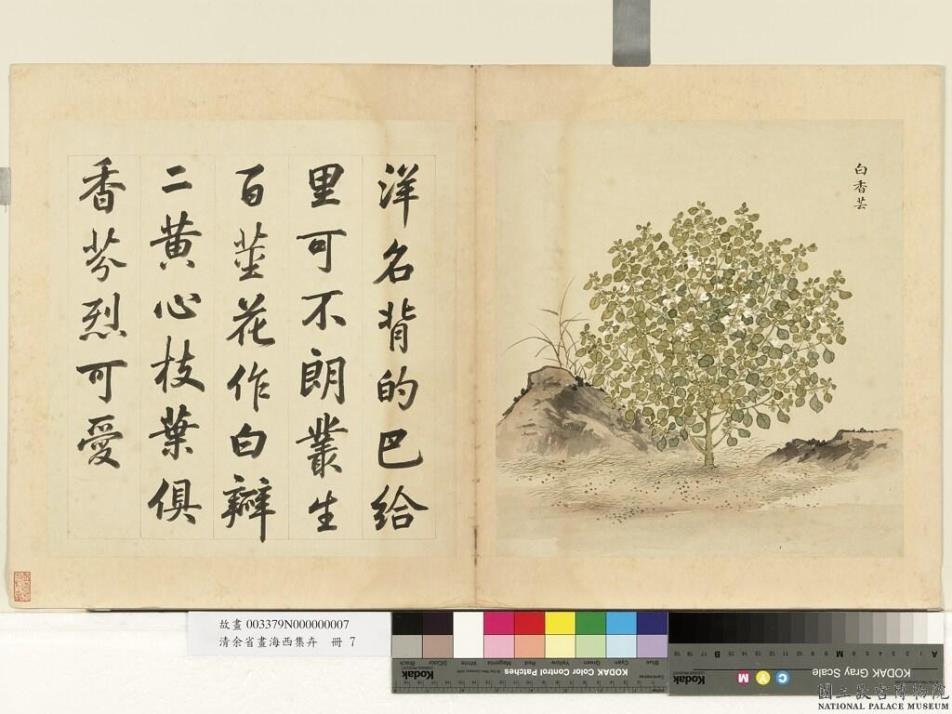 白香芸
洋名背的巴給
里可不朗叢生
百莖花作白瓣
二黄心枝葉俱
香芬烈可愛
故畫 003379N000000007
清余省畫海西集卉 冊 7
KODAK Color Control Patches
Blue Cyan Green Yellow Red Magenta White 3/Color Black
KODAK Gray Scale
C Y M
Kodak
國立故宮博物院
NATIONAL PALACE MUSEUM